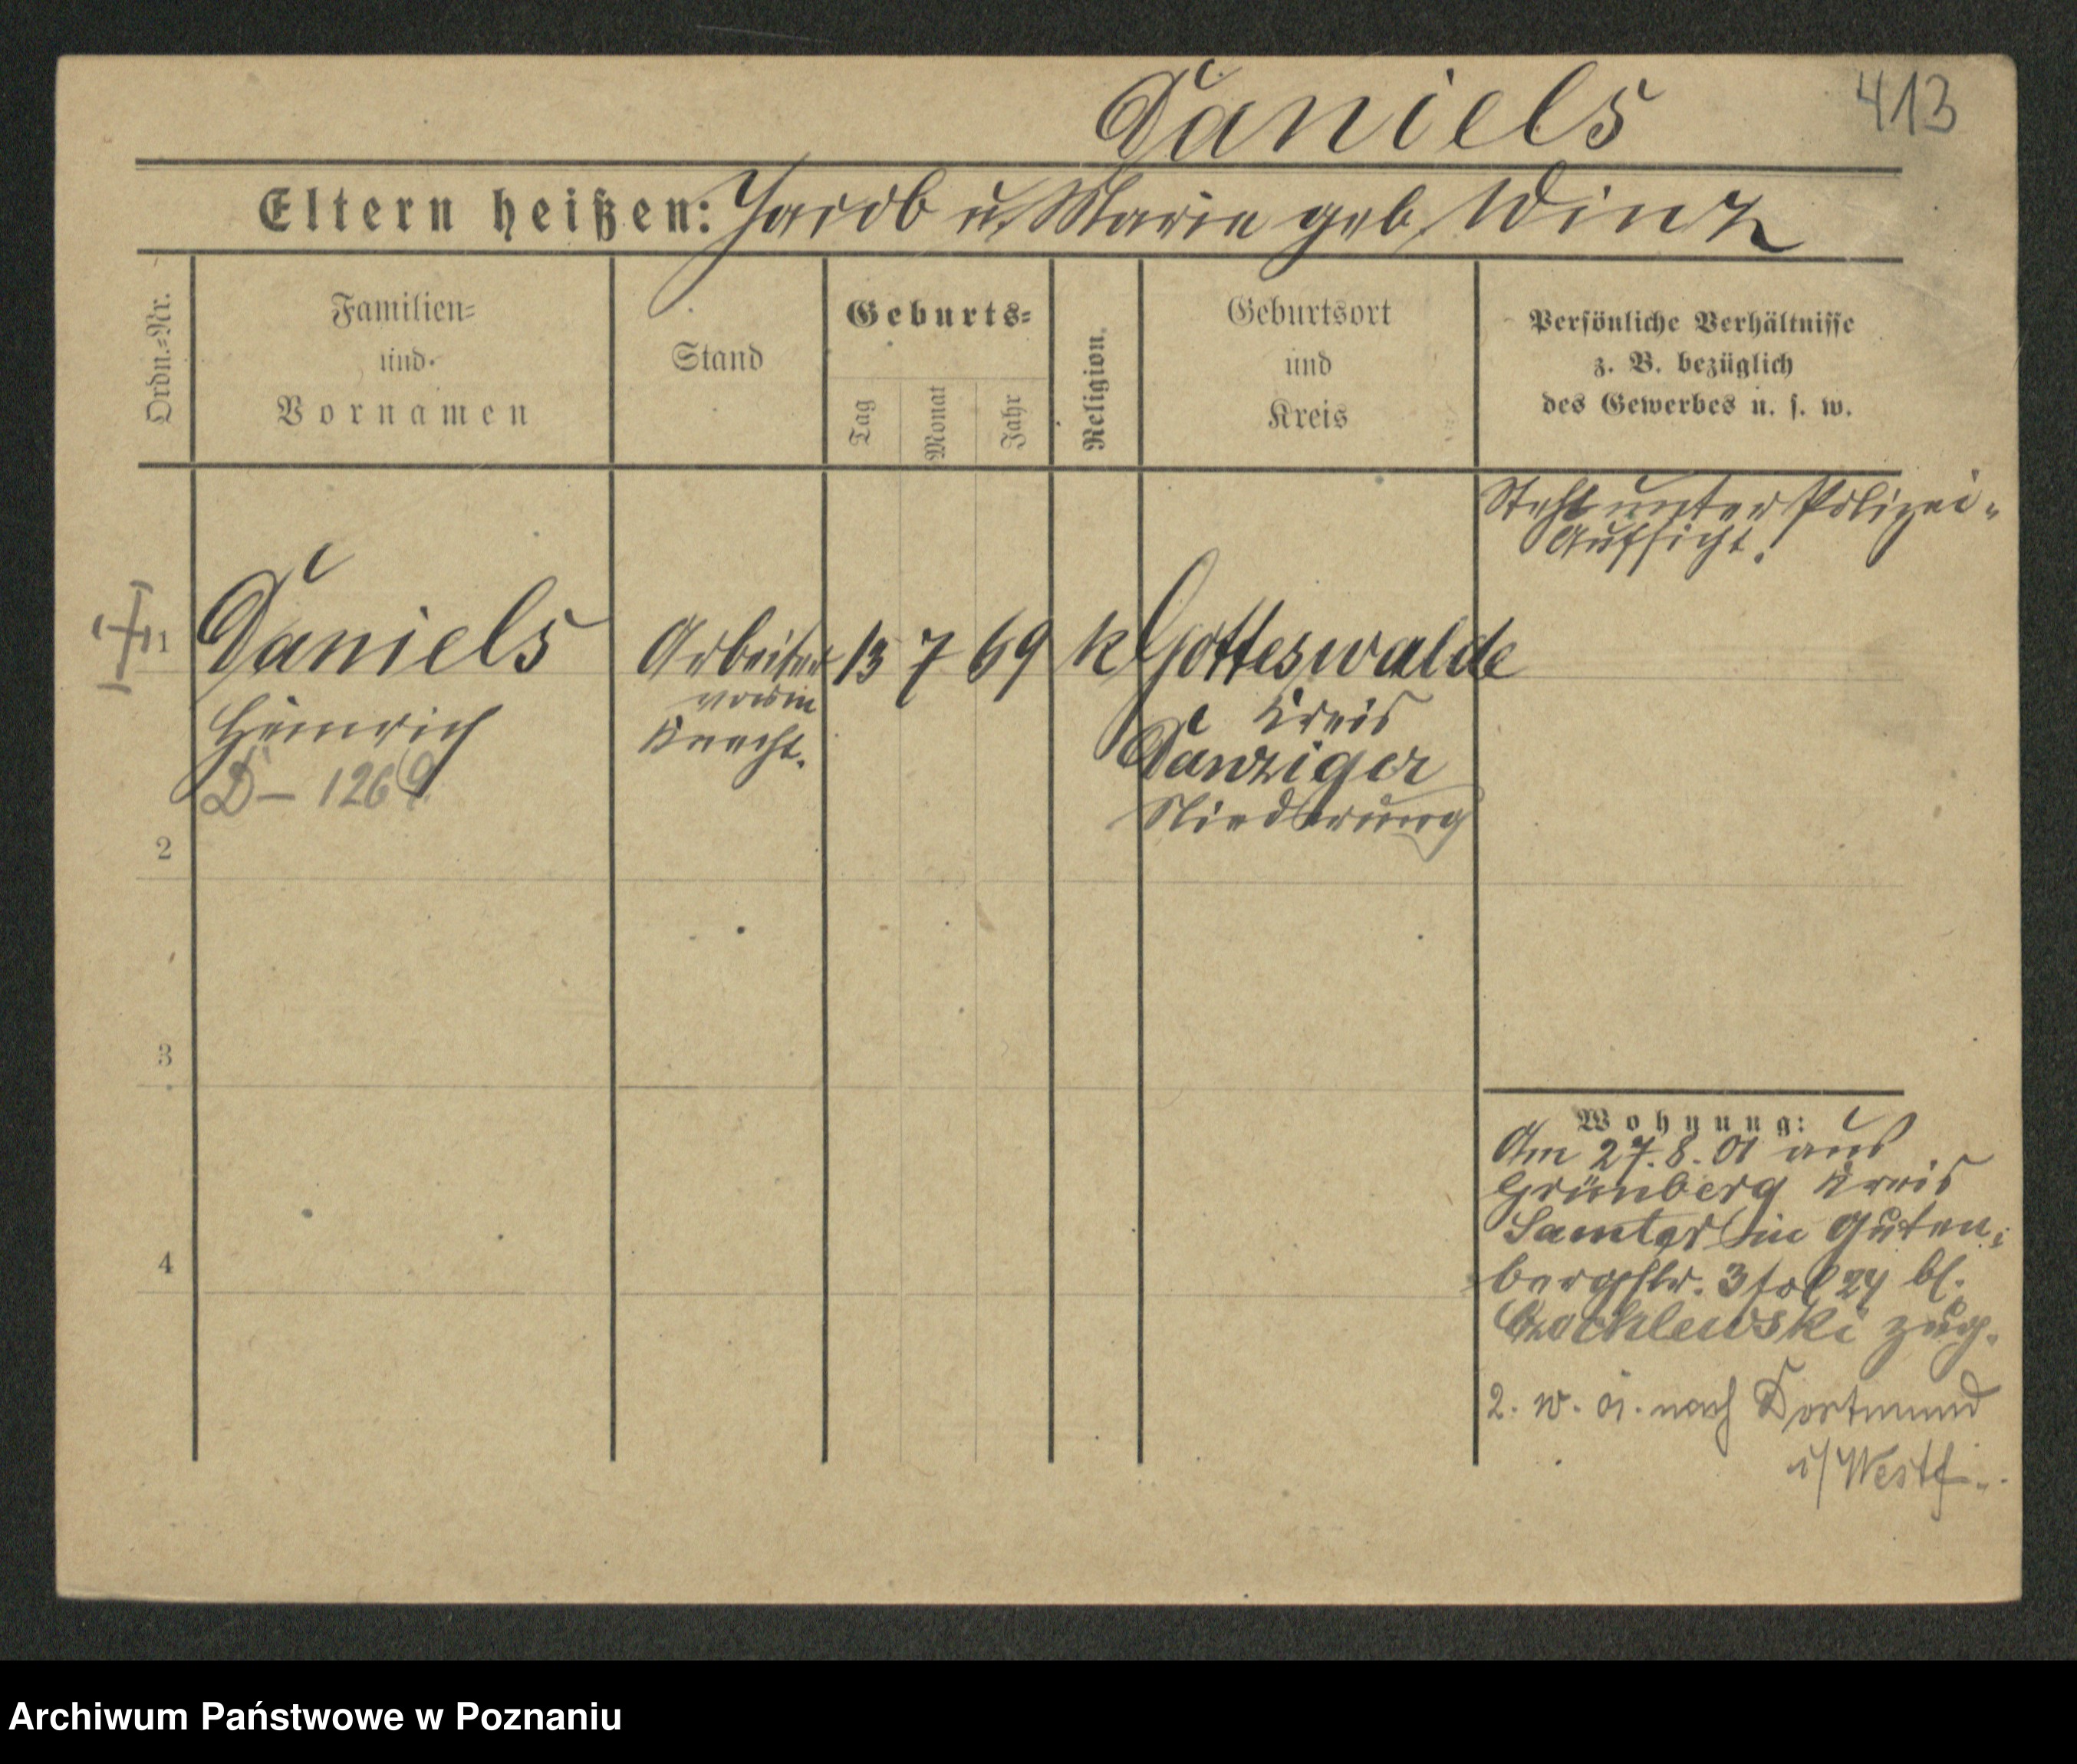 Daniels
413
Eltern heißen: Jacob u. Marie geb. Winz
Ordn.=Nr.
Familien=
und
Vornamen
Stand
Geburts=
Tag
Monat
Jahr
Religion.
Geburtsort
und
Kreis
Persönliche Verhältnisse
z. B. bezüglich
des Gewerbes u. s. w.
Steht unter Polizei-
Aufsicht.
1
Daniels
Heinrich
D - 1269
Arbeiter
Knecht.
13 7 69
k
Gotteswalde
Kreis
Danziger
Niederung
2
3
4
Wohnung:
Am 27.8.01 aus
Grünberg Kreis
Samter in Guten-
bergstr. 3 bl.
zug.
nach Dortmund
i/Westf.
Archiwum Państwowe w Poznaniu